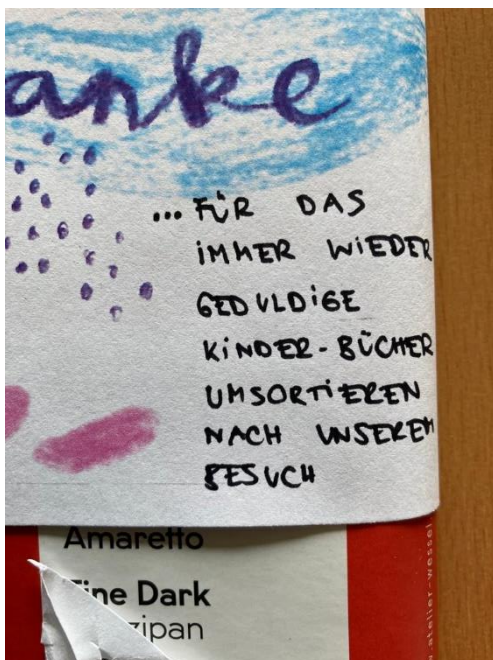 anke
... FÜR DAS
iMMER WiEDER
GEDULDiGE
KiNDER-BÜCHER
UMSORTiEREN
NACH UNSEREM
BESUCH
Amaretto
Fine Dark
zipan
atelier-wessel